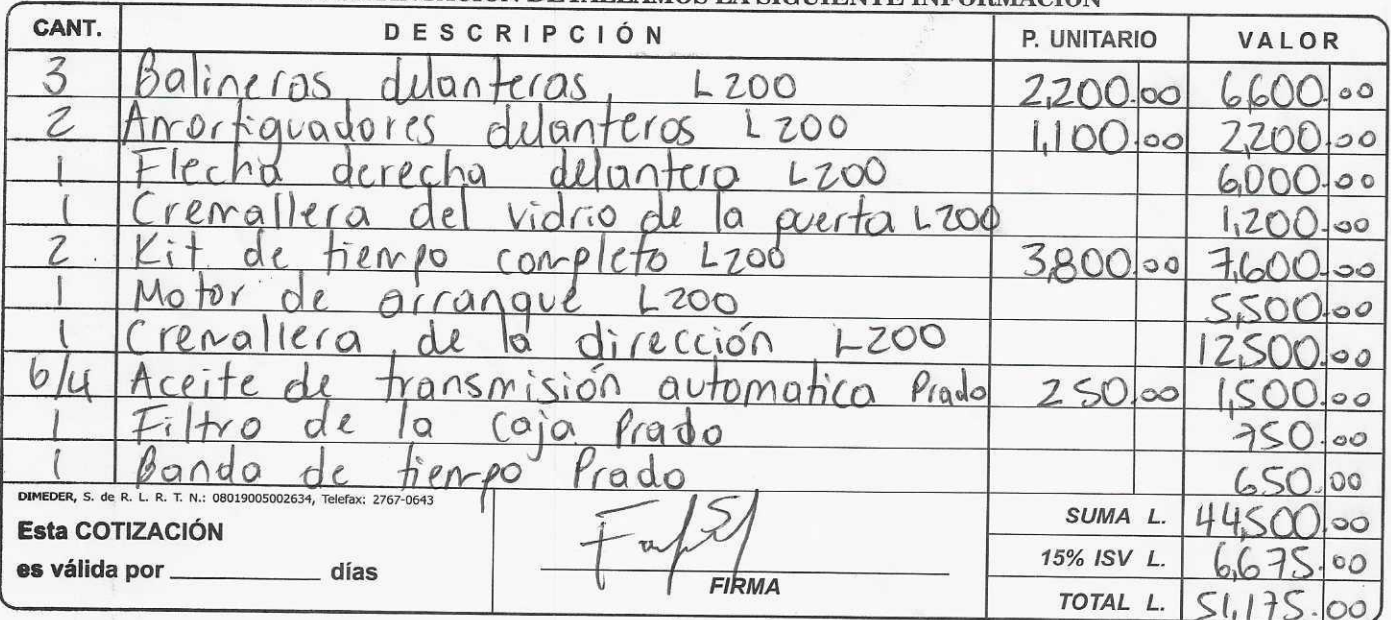 DETALLAMOS LA SIGUIENTE INFORMACIÓN
CANT. DESCRIPCIÓN P. UNITARIO VALOR
3 Balineras delanteras, L200 2,200.00 6,600.00
2 Amortiguadores delanteros L200 1,100.00 2,200.00
1 Flecha derecha delantera L200 6,000.00
1 Cremallera del vidrio de la puerta L200 1,200.00
2 Kit de tiempo completo L200 3,800.00 7,600.00
1 Motor de arranque L200 5,500.00
1 Cremallera de la dirección L200 12,500.00
6/4 Aceite de transmisión automatica Prado 250.00 1,500.00
1 Filtro de la caja Prado 750.00
1 Banda de tiempo Prado 650.00
DIMEDER, S. de R. L. R. T. N.: 08019005002634, Telefax: 2767-0643
SUMA L. 44,500.00
Esta COTIZACIÓN
15% ISV L. 6,675.00
es válida por ________ días
FIRMA
TOTAL L. 51,175.00